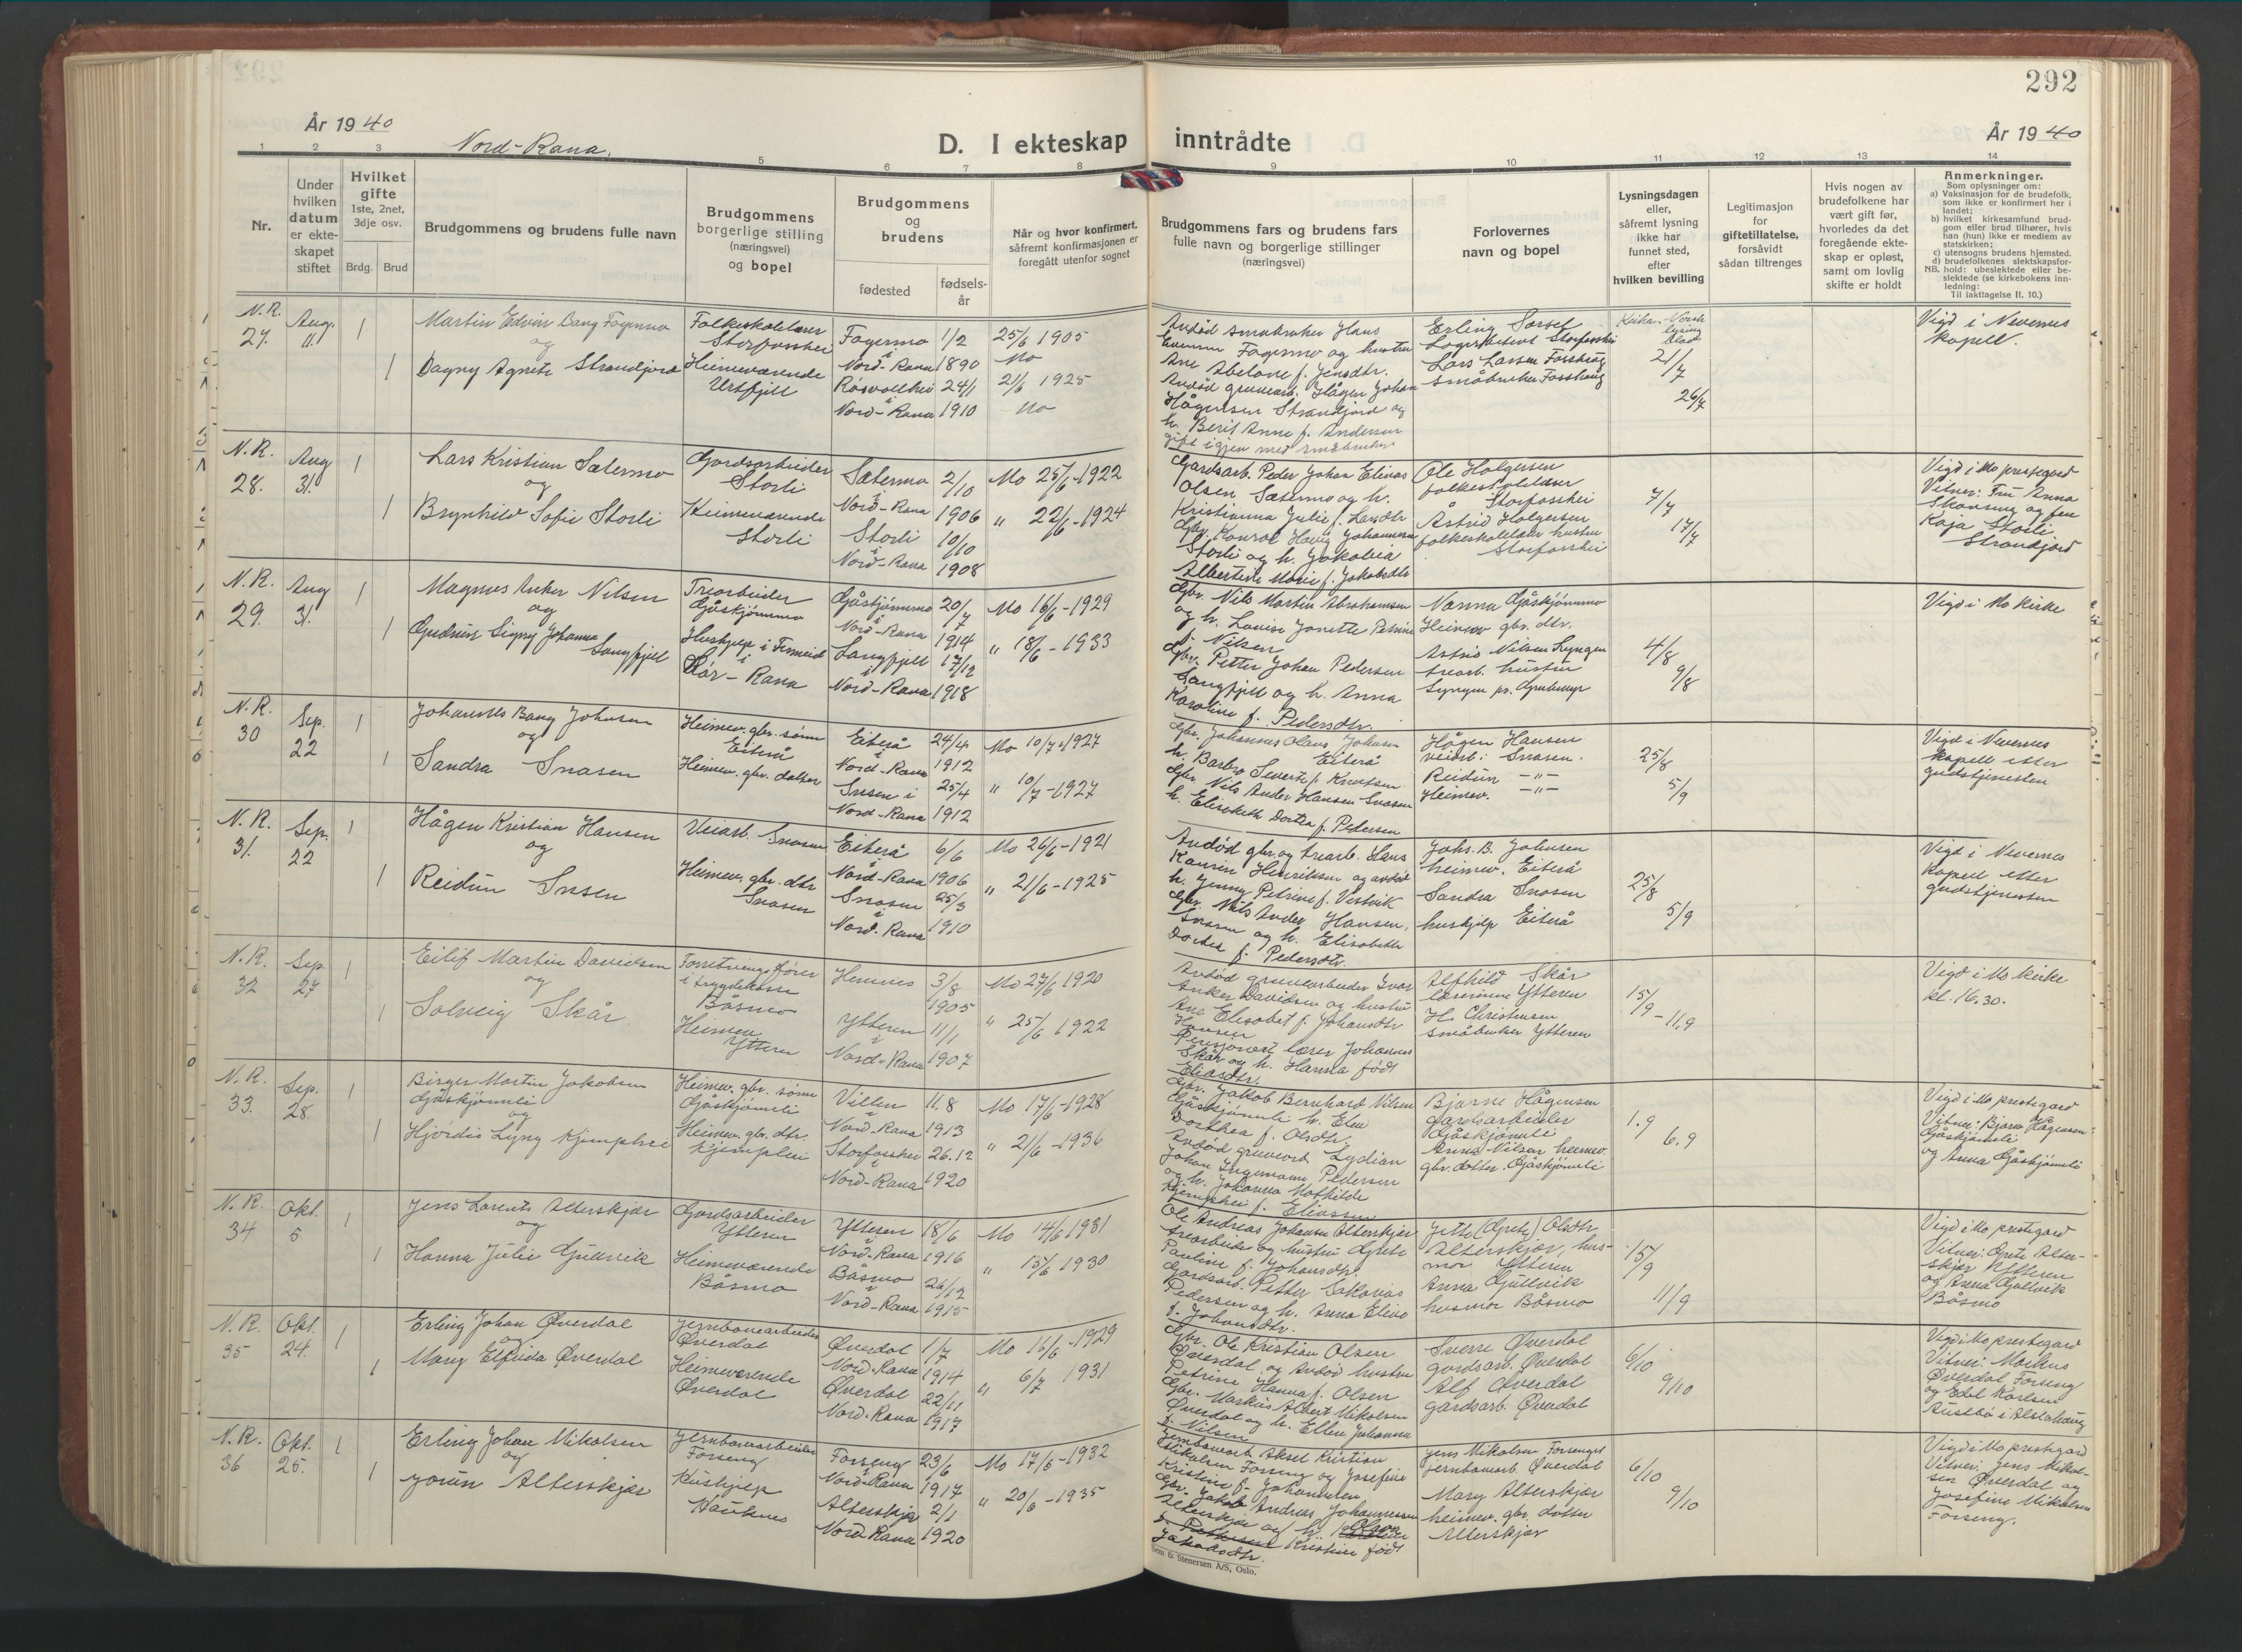 292
År 19 40
Nord-Rana.
D. I ekteskap inntrådte
År 19 40
1 2 3 5 6 7 8 9 10 11 12 13 14
Nr.
Under
hvilken
datum
er ekte-
skapet
stiftet
Hvilket
gifte
1ste, 2net,
3dje osv.
Brdg. Brud
Brudgommens og brudens fulle navn
Brudgommens
borgerlige stilling
(næringsvei)
og bopel
Brudgommens
og
brudens
fødested
fødsels-
år
Når og hvor konfirmert,
såfremt konfirmasjonen er
foregått utenfor sognet
Brudgommens fars og brudens fars
fulle navn og borgerlige stillinger
(næringsvei)
Forlovernes
navn og bopel
Lysningsdagen
eller,
såfremt lysning
ikke har
funnet sted,
efter
hvilken bevilling
Legitimasjon
for
giftetillatelse,
forsåvidt
sådan tiltrenges
Hvis nogen av
brudefolkene har
vært gift før,
hvorledes da det
foregående ekte-
skap er opløst,
samt om lovlig
skifte er holdt
Anmerkninger.
Som oplysninger om:
a) Vaksinasjon for de brudefolk,
som ikke er konfirmert her i
landet;
b) hvilket kirkesamfund brud-
gom eller brud tilhører, hvis
han (hun) ikke er medlem av
statskirken;
c) utensogns brudens hjemsted.
d) brudefolkenes slektskapsfor-
hold: ubeslektede eller be-
slektede (se kirkebokens inn-
ledning:
NB.
Til iakttagelse II. 10.)
N.R.
27.
Aug.
11.
1
1
Martin Edvin Bang Fagermo
og
Dagny Agnete Strandjord
Folkeskolelærer
Storfosshei
Heimeværende
Urtfjell
Fagermo
i
Nord-Rana
Røsvollhei
i
Nord-Rana
1/2
1890
24/1
1910
25/6 1905
Mo
21/6 1925
Mo
Avdød småbruker Hans
Fagermo og hustru
Ane Abelone f. Jensdtr.
Avdød gruvearb. Hågen Johan
Hågensen Strandjord og
h. Berit Anna f. Andersen
gift igjen med småbruker
Erling Sørset
Storfosshei
Lars Larsen Fosshaug
småbruker Fosshaug
Norsk
lysing
blad
21/7
26/7
Vigd i Nevernes
kapell.
N.R.
28.
Aug
31.
1
1
Lars Kristian Sætermo
og
Brynhild Sofie Storli
Gardsarbeider
Storli
Heimeværende
Storli
Sætermo
i
Nord-Rana
Storli
i
Nord-Rana
2/10
1906
10/10
1908
Mo 25/6-1922
" 22/6-1924
Gardsarb. Peder Johan Elias
Olsen Sætermo og h.
Kristianna Julie f. Larsdtr
Gbr. Konrad Havig Johannesen
Storli og h. Jakobia
Albertine Marie f. Jakobsdtr
Ole Holgersen
folkeskolelærer
Storfosshei
Astrid Holgersen
folkeskolelærer hustru
Storfosshei
7/7
17/7
Vigd i Mo prestegard
Vitner: Fru Anna
Skavang og fru
Kaja Storli
Strandjord
N.R.
29.
Aug
31.
1
1
Magnus Anker Nilsen
og
Gudrun Signy Johanna
Langfjell
Trearbeider
Gåskjønmo
Hushjelp i Finneid
i
Sør-Rana
Gåskjønmo
i
Nord-Rana
Langfjell
i
Nord-Rana
20/7
1914
17/12
1918
Mo 16/6-1929
" 18/6-1933
Gbr. Nils Martin Abrahamsen
og h. Lovise Janette Petrine
f. Nilsen
Gbr. Petter Johan Pedersen
Langfjell og h. Anna
Karoline f. Pedersdtr.
Nanna Gåskjønmo
Heimev. gbr. dtr.
Astrid Nilsen Lyngen
trearb. hustru
Lyngen
4/8
9/8
Vigd i Mo kirke
N.R.
30
Sep.
22
1
1
Johannes Bang Johnsen
og
Sandra Snasen
Heimev. gbr. sønn
Eiterå
Heimev. gbr. datter
Eiterå
i
Nord-Rana
Snasen i
Nord-Rana
24/4
1912
25/4
1912
Mo 10/7-1927
" 10/7-1927
Gbr. Johannes Olaus Johnsen
Eiterå
h. Barbro Severte f. Knutsen
Gbr. Nils Ander Hansen Snasen
h. Elisabeth Dortea f. Pedersen
Hågen Hansen
veiarb. Snasen.
Reidun -"-
Heimev. -"-
25/8
5/9
Vigd i Nevernes
kapell etter
gudstjenesten
N.R.
31.
Sep.
22
1
1
Hågen Kristian Hansen
og
Reidun Snasen
Veiarb. Snasen
Heimev. gbr. dtr
Snasen
Eiterå
i
Nord-Rana
Snasen
i
Nord-Rana
6/6
1906
25/3
1910
Mo 26/6-1921
" 21/6-1925
Avdød gbr. og trearb. Hans
Henriksen og avdød
h. Jenny Petrine f. Vestvik
Gbr. Nils Ander Hansen,
Snasen og h. Elisabeth
Dortea f. Pedersdtr.
Johs. B. Johnsen
heimev. Eiterå
Sandra Snasen
hushjelp Eiterå
25/8
5/9
Vigd i Nevernes
kapell etter
gudstjenesten
N.R.
32
Sep.
27
1
1
Eilif Martin Davidsen
og
Solveig Skår
Forretningsfører
i trygdekasse
Båsmo
Heimev
Ytteren
Hemnes
Ytteren
i
Nord-Rana
3/8
1905
11/1
1907
Mo 27/6 1920
" 25/6 1922
Avdød gruvearbeider Ivar
Anker Davidsen og hustru
Ane Elisabet f. Johansdtr
Hansen
Pensjonert lærer Johannes
Skår og h. Hanna født
Eliasdtr.
Alfhild Skår
lærerinne Ytteren
H. Christensen
småbruker Ytteren
15/9-11.9
Vigd i Mo kirke
kl. 16.30.
N.R.
33.
Sep.
28.
1
1
Birger Martin Jakobsen
Gåskjønnli
og
Hjørdis Lyng Kjemphei
Heimev. gbr. sønn
Gåskjønnli
Heimev. gbr. dtr.
Kjemphei
Villen
i
Nord-Rana
Storfosshei
i
Nord-Rana
11.8
1913
26.12
1920
Mo 17/6-1928
" 21/6-1936
Gbr. Jakob Bernhard Nilsen
Gåskjønnli h. Elen
Dorthea f. Olsdtr.
Avdød gruvearb. Lydian
Johan Ingemann Pedersen
og h. Johanna Mathilde
Kjemphei f. Eliassen
Bjarne Hågensen
gardsarbeider
Gåskjønnli
Anna Nilsen heimev.
gbr. dotter. Gåskjønnli
1.9
6.9
Vigd i Mo prestegard
Vitner: Bjarne Hågensen
Gåskjønnli
og Anna Gåskjønnli
N.R.
34
Okt.
5
1
1
Jens Lorents Alterskjær
og
Hanna Julie Gullvik
Gardsarbeider
Ytteren
Heimeværende
Båsmo
Ytteren
i
Nord-Rana
Båsmo
i
Nord-Rana
18/6
1916
26/12
1915
Mo 14/6 1931
" 15/6 1930
Ole Andreas Johansen Alterskjær
trearbeider og hustru Grete
Pauline f. Johansdtr.
Gardsarb. Petter Sakarias
Pedersen og h. Anna Elise
f. Johansdtr.
Jette (Grete) Olsdtr
Alterskjær, hus-
mor Ytteren
Anna Gullvik
husmor Båsmo
15/9
11/9
Vigd i Mo prestegard
Vitner: Grete Alter-
skjær Ytteren
og Anna Gullvik
Båsmo
N.R.
35
Okt.
24.
1
1
Erling Johan Øverdal
og
Mary Elfrida Øverdal
Jernbanearbeider
Øverdal
Heimeværende
Øverdal
Øverdal
Nord-Rana
Øverdal
Nord-Rana
1/7
1914
22/11
1917
Mo 16/6-1929
" 6/7 1931
Gbr. Ole Kristian Olsen
Øverdal og avdød hustru
Petrine Hanna f. Olsen
Gbr. Markus Albert Mikalsen
Øverdal og h. Ellen Johanna
f. Nilsen
Sverre Øverdal
gardsarb. Øverdal
Alf Øverdal
gardsarb. Øverdal
6/10
9/10
Vigd i Mo prestegard
Vitner: Markus
Øverdal Forseng
og Edel Karlsen
Austbø i Alstahaug
N.R.
36
Okt.
25.
1
1
Erling Johan Mikalsen
og
Jorun Alterskjær
Jernbanearbeider
Forseng
Hushjelp
Hauknes
Forseng
Nord-Rana
Alterskjær
Nord-Rana
23/6
1917
2/1
1920
Mo 17/6-1932
" 20/6-1935
Jernbanearb. Aksel Kristian
Mikalsen Forseng og Josefine
Kristine f. Johannesen
Gbr. Jakob Andreas Johannessen
Alterskjær og h.
Kristine født
Jakobsdtr.
Jens Mikalsen Forsenget
jernbanearb. Øverdal
Mary Alterskjær
heimev. gbr. dotter
Alterskjær
6/10
9/10
Vigd i Mo prestegard
Vitner: Jens Mikal-
sen Øverdal og
Josefine Mikalsen
Forseng.
Sem & Stenersen A/S, Oslo.